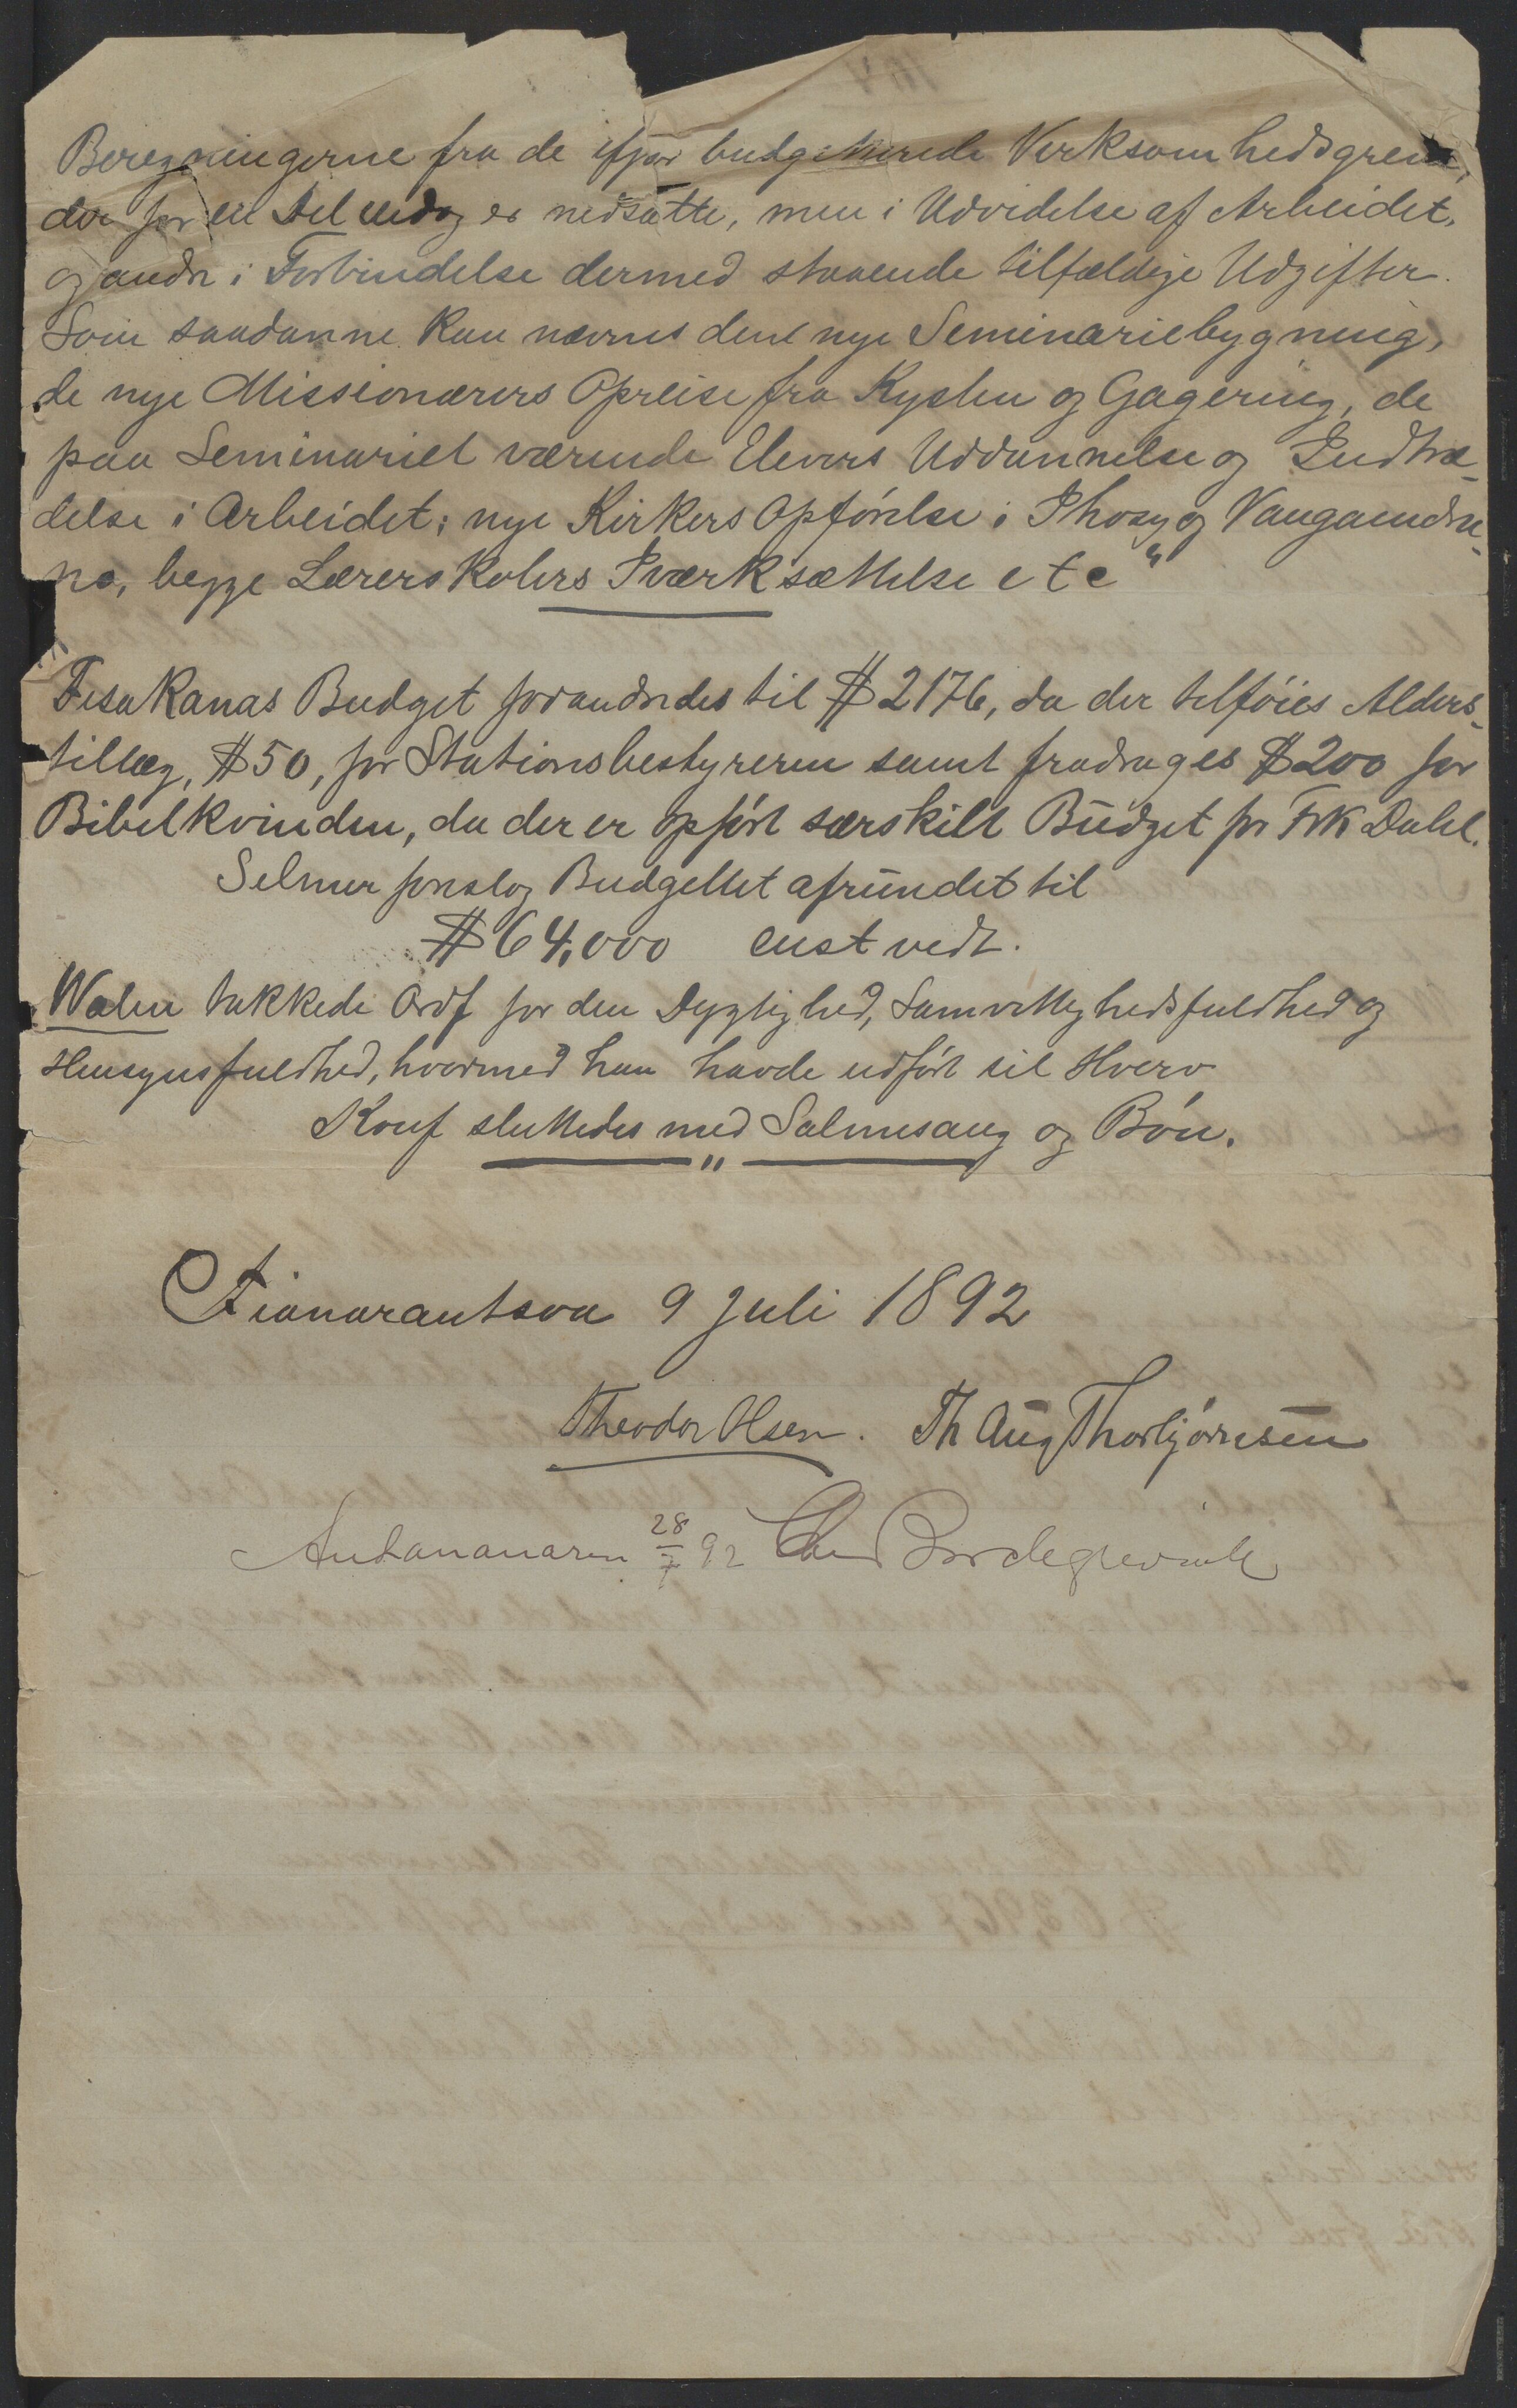 Beregningerne fra de ifjor budgetterede Verksomhedsgrene,
der for en Del endog er nedsatte, men i Udvidelse af Arbeidet,
og andre i Forbindelse dermed staaende tilfældige Udgifter.
Som saadanne kan nævnes den nye Seminariebygning,
de nye Missionærers Opreise fra Kysten og Gagering, de
paa Seminariet værende Elevers Uddannelse og Indtræ-
delse i Arbeidet; nye Kirkers Opförelse i Ihosy og Vangaindra-
no, begge Lærerskolers Iværksættelse etc"
Fisakanas Budget forandredes til $ 2176, da der tilföies Alders-
tillæg, $ 50, for Stationsbestyreren samt fradrages $ 200 for
Bibelkvinden, da der er opfört særskilt Budget for Frk Dahl.
Selmer foreslog Budgettet afrundet til
$ 64,000 enst vedt.
Walen takkede Ordf for den Dygtighed, Samvittighedsfuldhed og
Hensynsfuldhed, hvormed han havde udfört sit Hverv
Konf sluttedes med Salmesang og Bön.
Fianarantsoa 9 Juli 1892
Theodor Olsen. Th Aug Thorbjörnsen
Antananarivo 28/7 92 Chr Borchgrevink